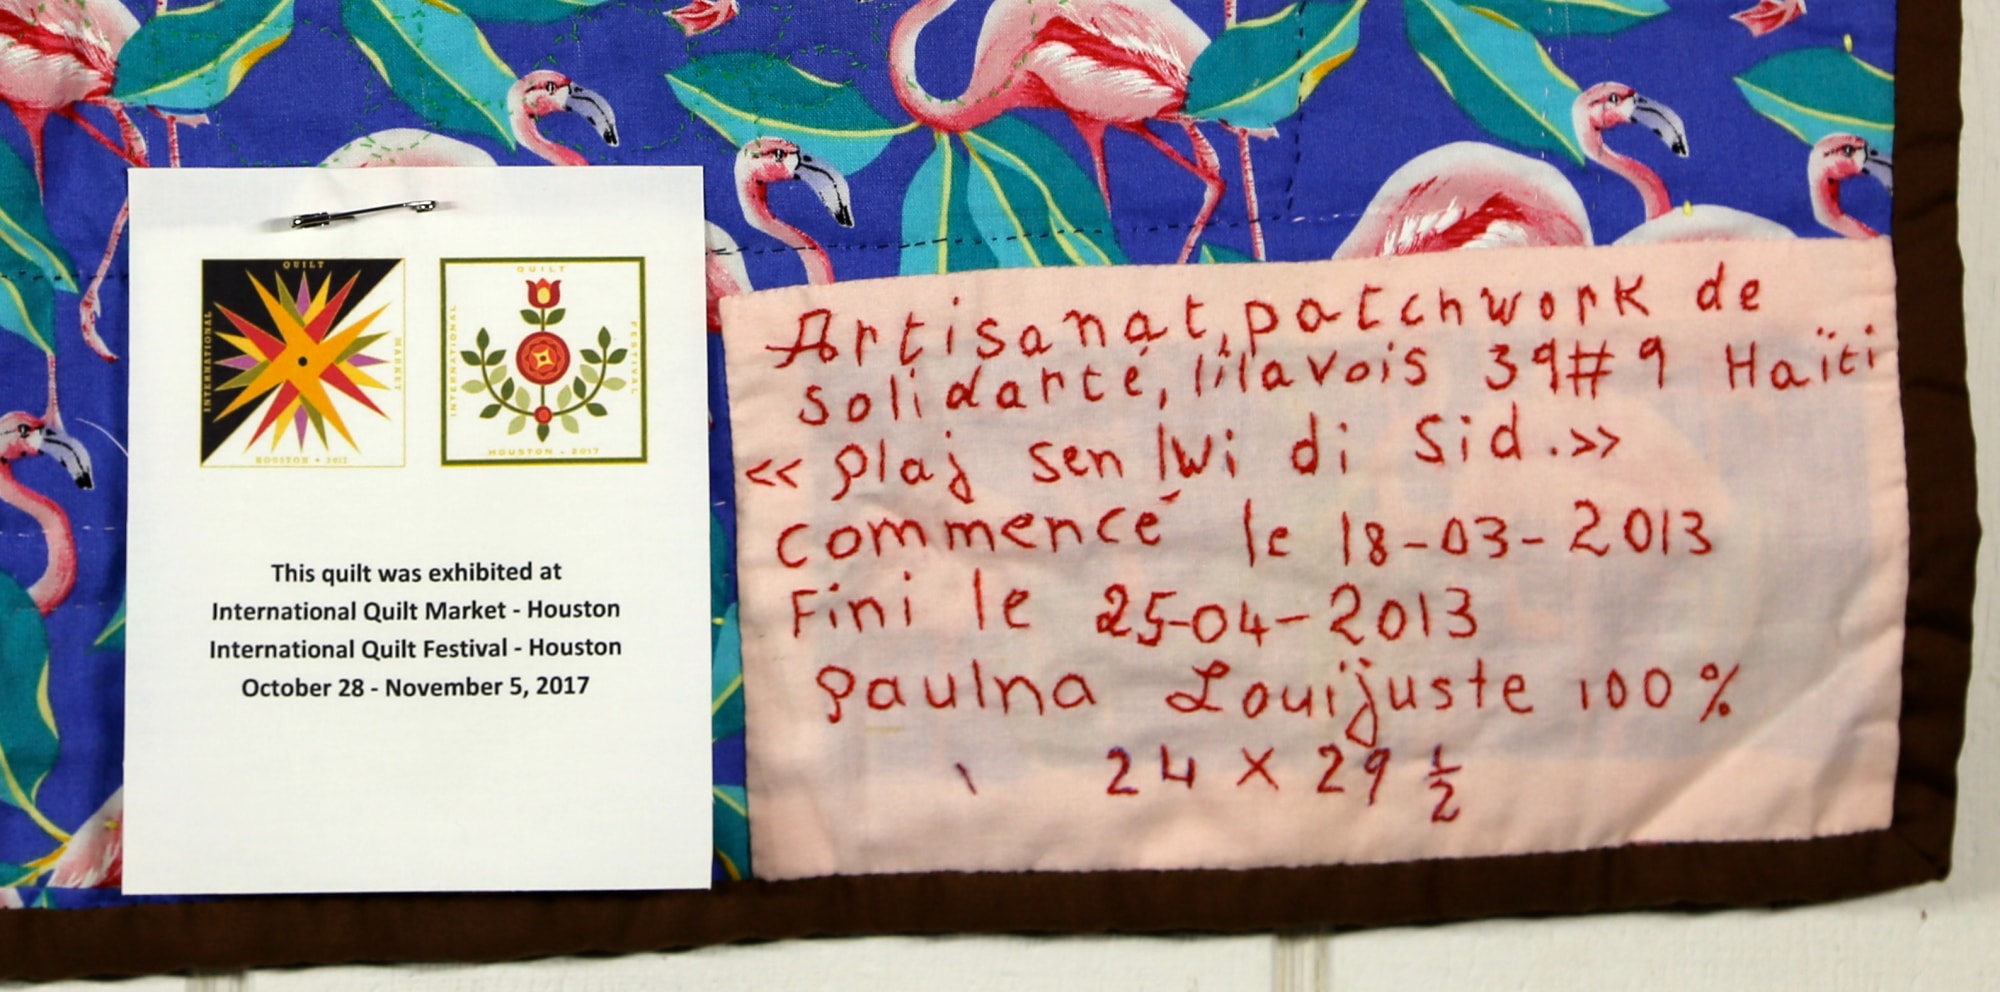 QUILT
INTERNATIONAL
MARKET
HOUSTON • 2017
QUILT
INTERNATIONAL
FESTIVAL
HOUSTON - 2017
This quilt was exhibited at
International Quilt Market - Houston
International Quilt Festival - Houston
October 28 - November 5, 2017
Artisanat, patchwork de
solidarté, lilavois 39#9 Haïti
<< plaj sen lwi di Sid.>>
commencé le 18-03-2013
Fini le 25-04-2013
paulna Louijuste 100%
24 x 29 1/2